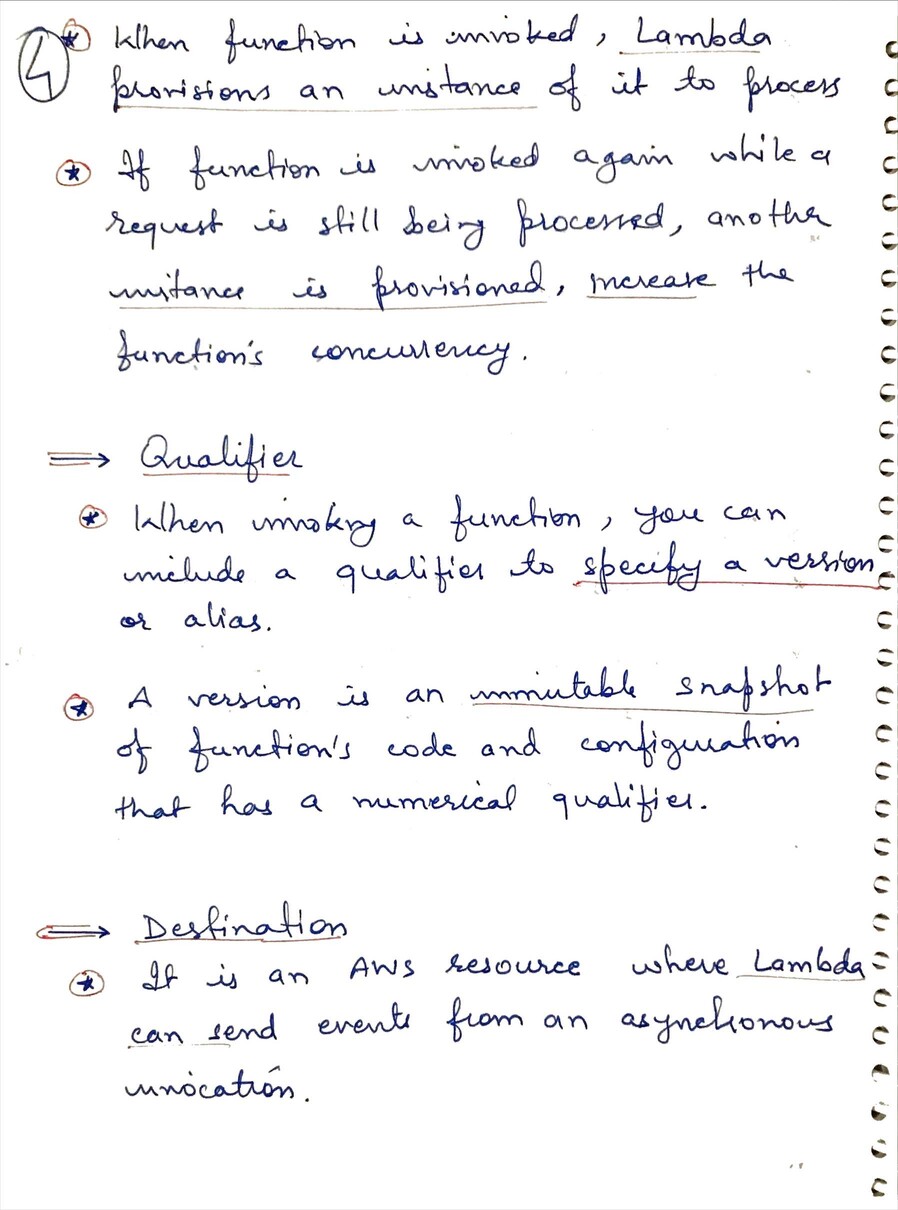 4
* When function is invoked, Lambda
provisions an instance of it to process
* If function is invoked again while a
request is still being processed, another
instance is provisioned, increase the
function's concurrency.
⇒ Qualifier
* When invoking a function, you can
include a qualifier to specify a version
or alias.
* A version is an immutable snapshot
of function's code and configuration
that has a numerical qualifier.
⇒ Destination
* It is an AWS resource where Lambda
can send events from an asynchronous
invocation.